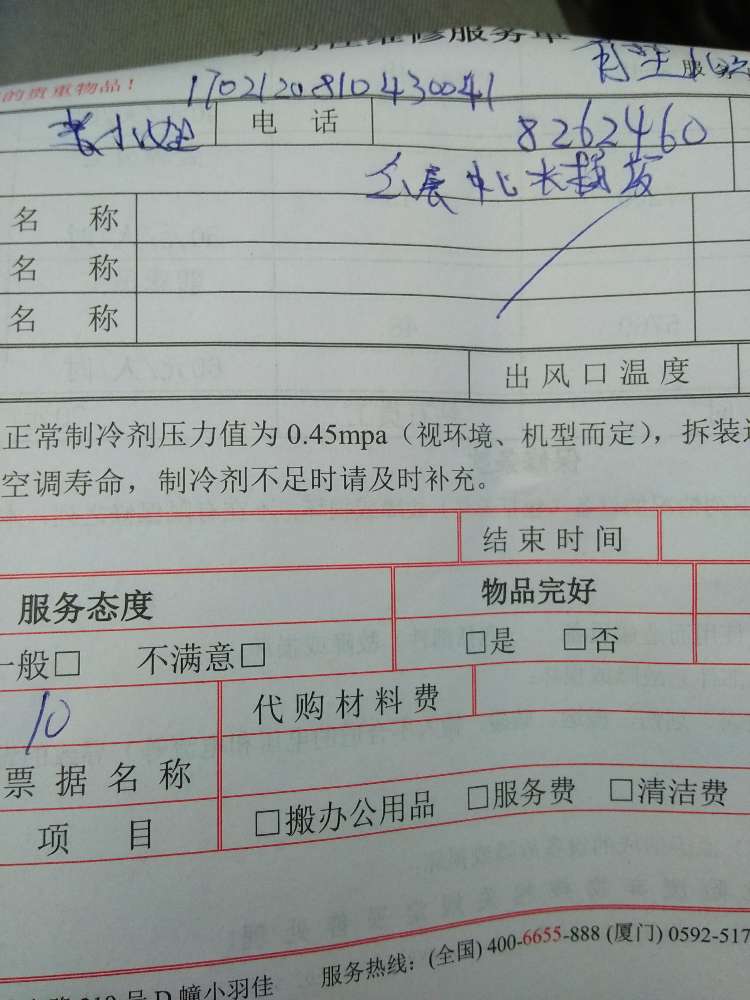 维修服务单
的贵重物品！ 1702120810430041 服
电 话 8262460
名 称
名 称
名 称
出风口温度
正常制冷剂压力值为0.45mpa（视环境、机型而定），拆装
空调寿命，制冷剂不足时请及时补充。
结束时间
服务态度 物品完好
一般□ 不满意□ □是 □否
10 代购材料费
票据名称
项 目 □搬办公用品 □服务费 □清洁费
服务热线：(全国) 400-6655-888 (厦门) 0592-517
219号D幢小羽佳